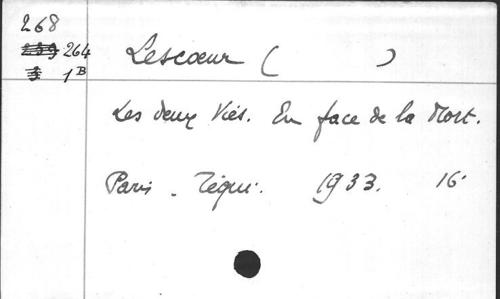 268
264 Lescœur ( )
1 B
Les deux Vies. En face de la Mort.
Paris - Téqui. 1933. 16°